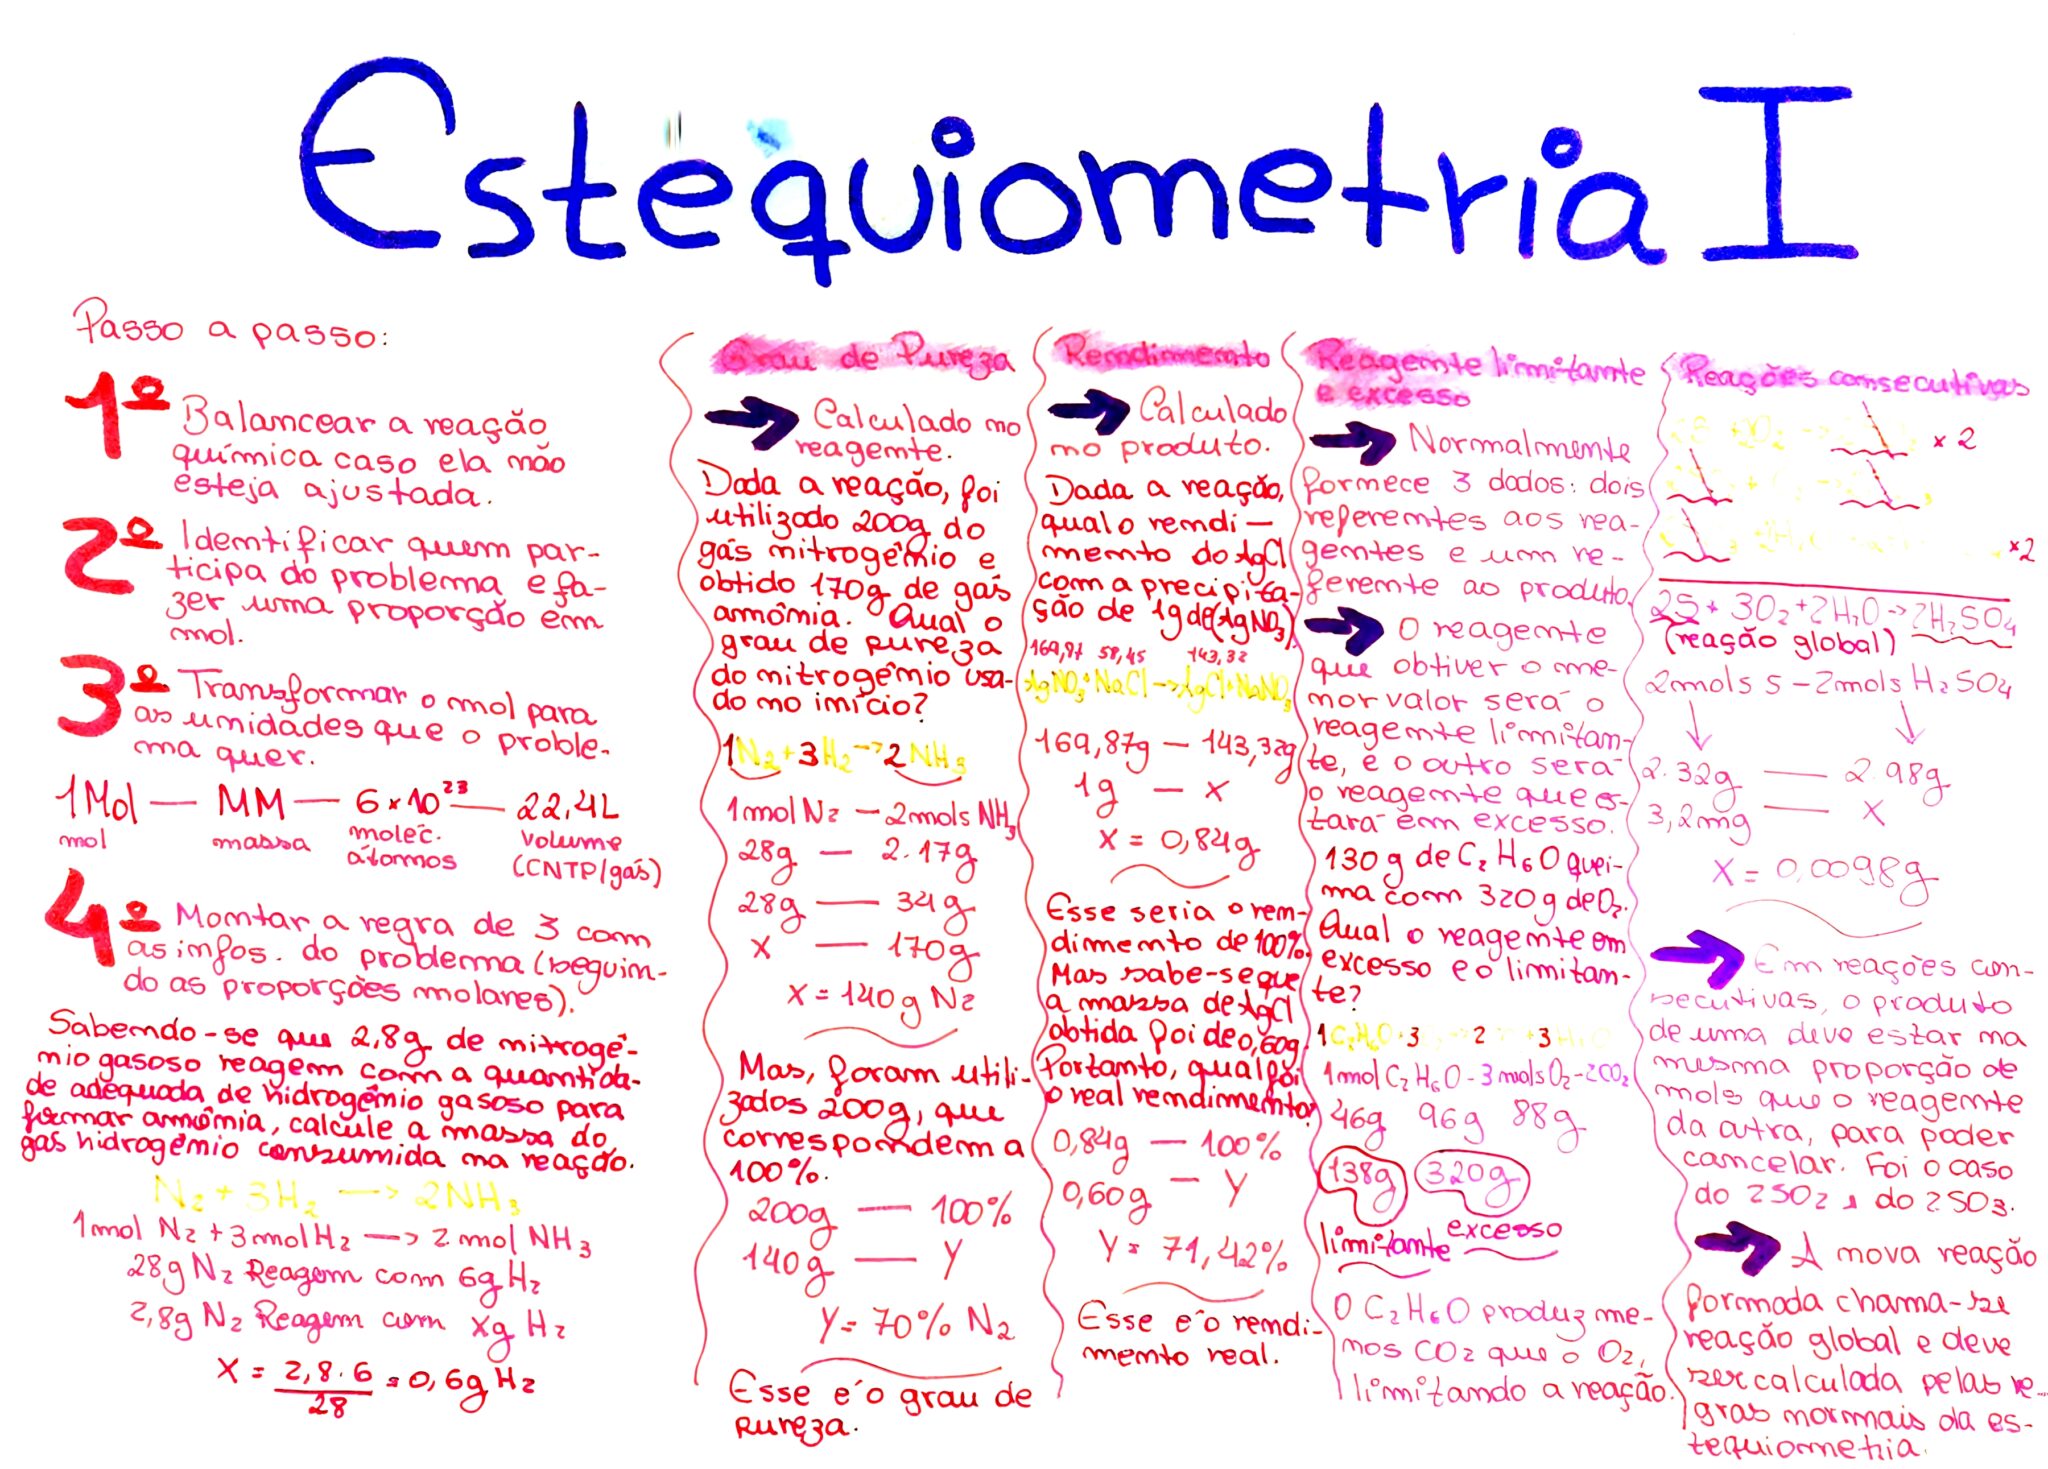 Estequiometria I
Passo a passo:
1º Balancear a reação
química caso ela não
esteja ajustada.
2º Identificar quem par-
ticipa do problema e fa-
zer uma proporção em
mol.
3º Transformar o mol para
as unidades que o proble-
ma quer.
1Mol — MM — 6×10²³ — 22,4L
mol massa moléc. volume
átomos (CNTP/gás)
4º Montar a regra de 3 com
as infos. do problema (seguin-
do as proporções molares).
Sabendo-se que 2,8g de nitrogê-
nio gasoso reagem com a quantida-
de adequada de hidrogênio gasoso para
formar amônia, calcule a massa do
gás hidrogênio consumida na reação.
N₂ + 3H₂ —> 2NH₃
1mol N₂ + 3mol H₂ —> 2mol NH₃
28g N₂ Reagem com 6g H₂
2,8g N₂ Reagem com xg H₂
X = 2,8.6 = 0,6g H₂
28
Grau de Pureza
Calculado no
reagente.
Dada a reação, foi
utilizado 200g do
gás nitrogênio e
obtido 170g de gás
amônia. Qual o
grau de pureza
do nitrogênio usa-
do no início?
1N₂+3H₂->2NH₃
1mol N₂ — 2mols NH₃
28g — 2.17g
28g — 34g
X — 170g
X = 140g N₂
Mas, foram utili-
zados 200g, que
correspondem a
100%.
200g — 100%
140g — Y
Y= 70% N₂
Esse é o grau de
pureza.
Rendimento
Calculado
no produto.
Dada a reação,
qual o rendi-
mento do AgCl
com a precipita-
ção de 1g de (AgNO₃).
169,87 58,45 143,32
AgNO₃+NaCl->AgCl+NaNO₃
169,87g — 143,32g
1g — X
X = 0,84g
Esse seria o ren-
dimento de 100%.
Mas sabe-se que
a massa de AgCl
obtida foi de 0,60g.
Portanto, qual foi
o real rendimento?
0,84g — 100%
0,60g — Y
Y= 71,42%
Esse é o rendi-
mento real.
Reagente limitante
e excesso
Normalmente
fornece 3 dados: dois
referentes aos rea-
gentes e um re-
ferente ao produto.
O reagente
que obtiver o me-
nor valor será o
reagente limitan-
te, e o outro será
o reagente que es-
tará em excesso.
130g de C₂H₆O quei-
ma com 320g de O₂.
Qual o reagente em
excesso e o limitan-
te?
1C₂H₆O+3 -> 2 + 3H O
1mol C₂H₆O - 3mols O₂ - 2CO₂
46g 96g 88g
138g 320g
limitante excesso
O C₂H₆O produz me-
nos CO₂ que o O₂,
limitando a reação.
Reações consecutivas
×2
×2
2S + 3O₂+2H₂O->2H₂SO₄
(reação global)
2mols S - 2mols H₂SO₄
2.32g — 2.98g
3,2mg — X
X = 0,0098g
Em reações con-
secutivas, o produto
de uma deve estar na
mesma proporção de
mols que o reagente
da outra, para poder
cancelar. Foi o caso
do 2SO₂ e do 2SO₃.
A nova reação
formada chama-se
reação global e deve
ser calculada pelas re-
gras normais da es-
tequiometria.